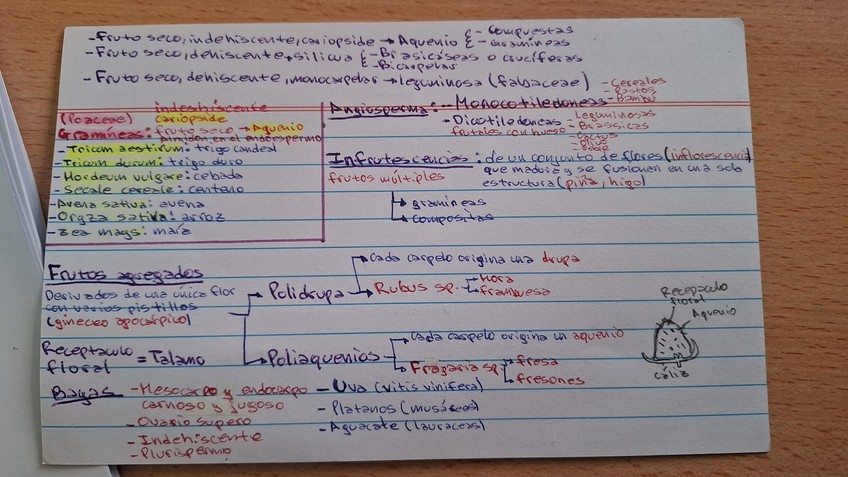 - Fruto seco, indehiscente, cariopside → Aquenio { - Compuestas
- Gramíneas
- Fruto seco, dehiscente, silicua { - Brasicáseas o crucíferas
- Bicarpelar
- Fruto seco, dehiscente, monocarpelar → leguminosa (fabaceae)
indeshiscente
(Poaceae) cariopside
Gramíneas: fruto seco → Aquenio
Almidón en el endospermo
- Tricum aestirum: trigo candeal
- Tricum durum: trigo duro
- Hordeum vulgare: cebada
- Secale cereale: centeno
- Avena sativa: avena
- Orgza sativa: arroz
- Zea mays: maíz
Angiosperma: - Monocotiledoneas
- Cereales
- Pastos
- Bambú
- Dicotiledoneas
frutales con hueso
- Leguminosas
- Brassicas
- Cactus
- Olivo
Infrutescencias: de un conjunto de flores (inflorescencia)
que madura y se fusionen en una sola
frutos múltiples
estructura (piña, higo)
gramineas
compositas
Frutos agregados
Derivados de una única flor
con varios pistilos
(gineceo apocárpico)
Polidrupa
Cada carpelo origina una drupa
Rubus sp.
Mora
Frambuesa
Poliaquenios
Cada carpelo origina un aquenio
Fragaria sp.
fresa
fresones
Receptaculo
floral = Talamo
Receptaculo
floral
Aquenio
cáliz
Bayas - Mesocarpo y endocarpo
carnoso y jugoso
- Ovario supero
- Indehiscente
- Plurispermo
- Uva (vitis vinifera)
- Platanos (musáceas)
- Aguacate (lauraceas)